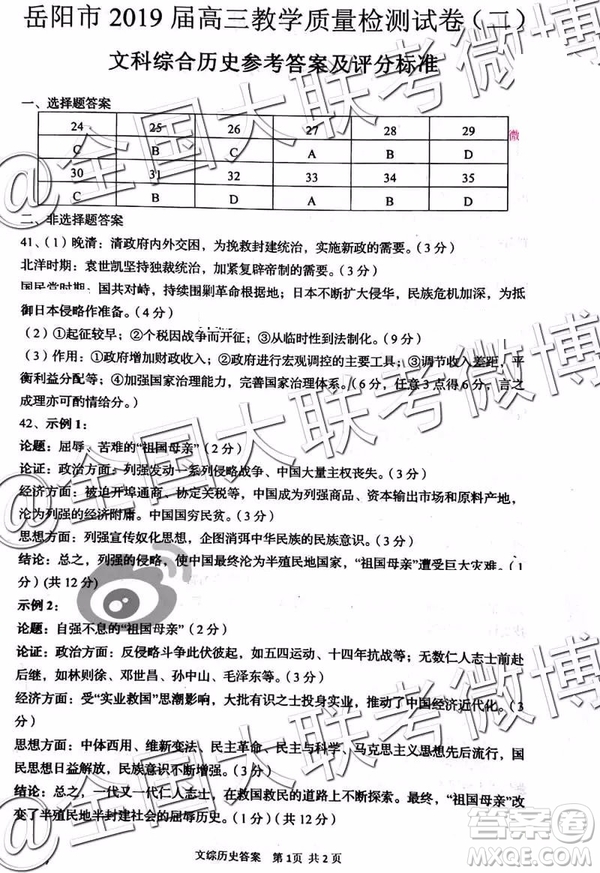 岳阳市 2019 届高三教学质量检测试卷（二）
文科综合历史参考答案及评分标准
一、选择题答案
24 25 26 27 28 29
C B C A B D
30 31 32 33 34 35
C A B D
二、非选择题答案
41、（1）晚清：清政府内外交困，为挽救封建统治，实施新政的需要。（3 分）
北洋时期：袁世凯坚持独裁统治，加紧复辟帝制的需要。（3 分）
国民党时期：国共对峙，持续围剿革命根据地；日本不断扩大侵华，民族危机加深，为抵
御日本侵略作准备。（4 分）
（2）①起征较早；②个税因战争而开征；③从临时性到法制化。（9 分）
（3）作用：①政府增加财政收入；②政府进行宏观调控的主要工具；③调节收入差距，平
衡利益分配等；④加强国家治理能力，完善国家治理体系。（6 分，任意 3 点 6 分，言之
成理亦可酌情给分。）
42、示例 1：
论题：屈辱、苦难的“祖国母亲”（2 分）
论证：政治方面：列强发动一系列侵略战争、中国大量主权丧失。（3 分）
经济方面：被迫开埠通商、协定关税，中国成为列强商品、资本输出市场和原料产地，
沦为列强的经济附庸。中国国穷民贫。（3 分）
思想方面：列强宣传奴化思想，企图消弭中华民族的民族意识。（3 分）
结论：总之，列强的侵略，使中国最终沦为半殖民地国家，“祖国母亲”遭受巨大灾难。（1
分）(共 12 分)
示例 2：
论题：自强不息的“祖国母亲”（2 分）
论证：政治方面：反侵略斗争此伏彼起，如五四运动、十四年抗战等；无数仁人志士前赴
后继，如林则徐、邓世昌、孙中山、毛泽东等。（3 分）
经济方面：受“实业救国”思潮影响，大批有识之士投身实业，推动了中国经济近代化。（3
分）
思想方面：中体西用、维新变法、民主革命、民主与科学、马克思主义先后流行，国民
思想日益解放，民族意识不断增强。（3 分）
结论：总之，一代又一代仁人志士，在救国救民的道路上不断探索。最终，“祖国母亲”改
变了半殖民地半封建社会的屈辱历史。（1 分）（共 12 分）
文综历史答案 第 1页 共 2 页
@全国大联考微博
@全国大联考微博
微
答案圈
MXQE.COM